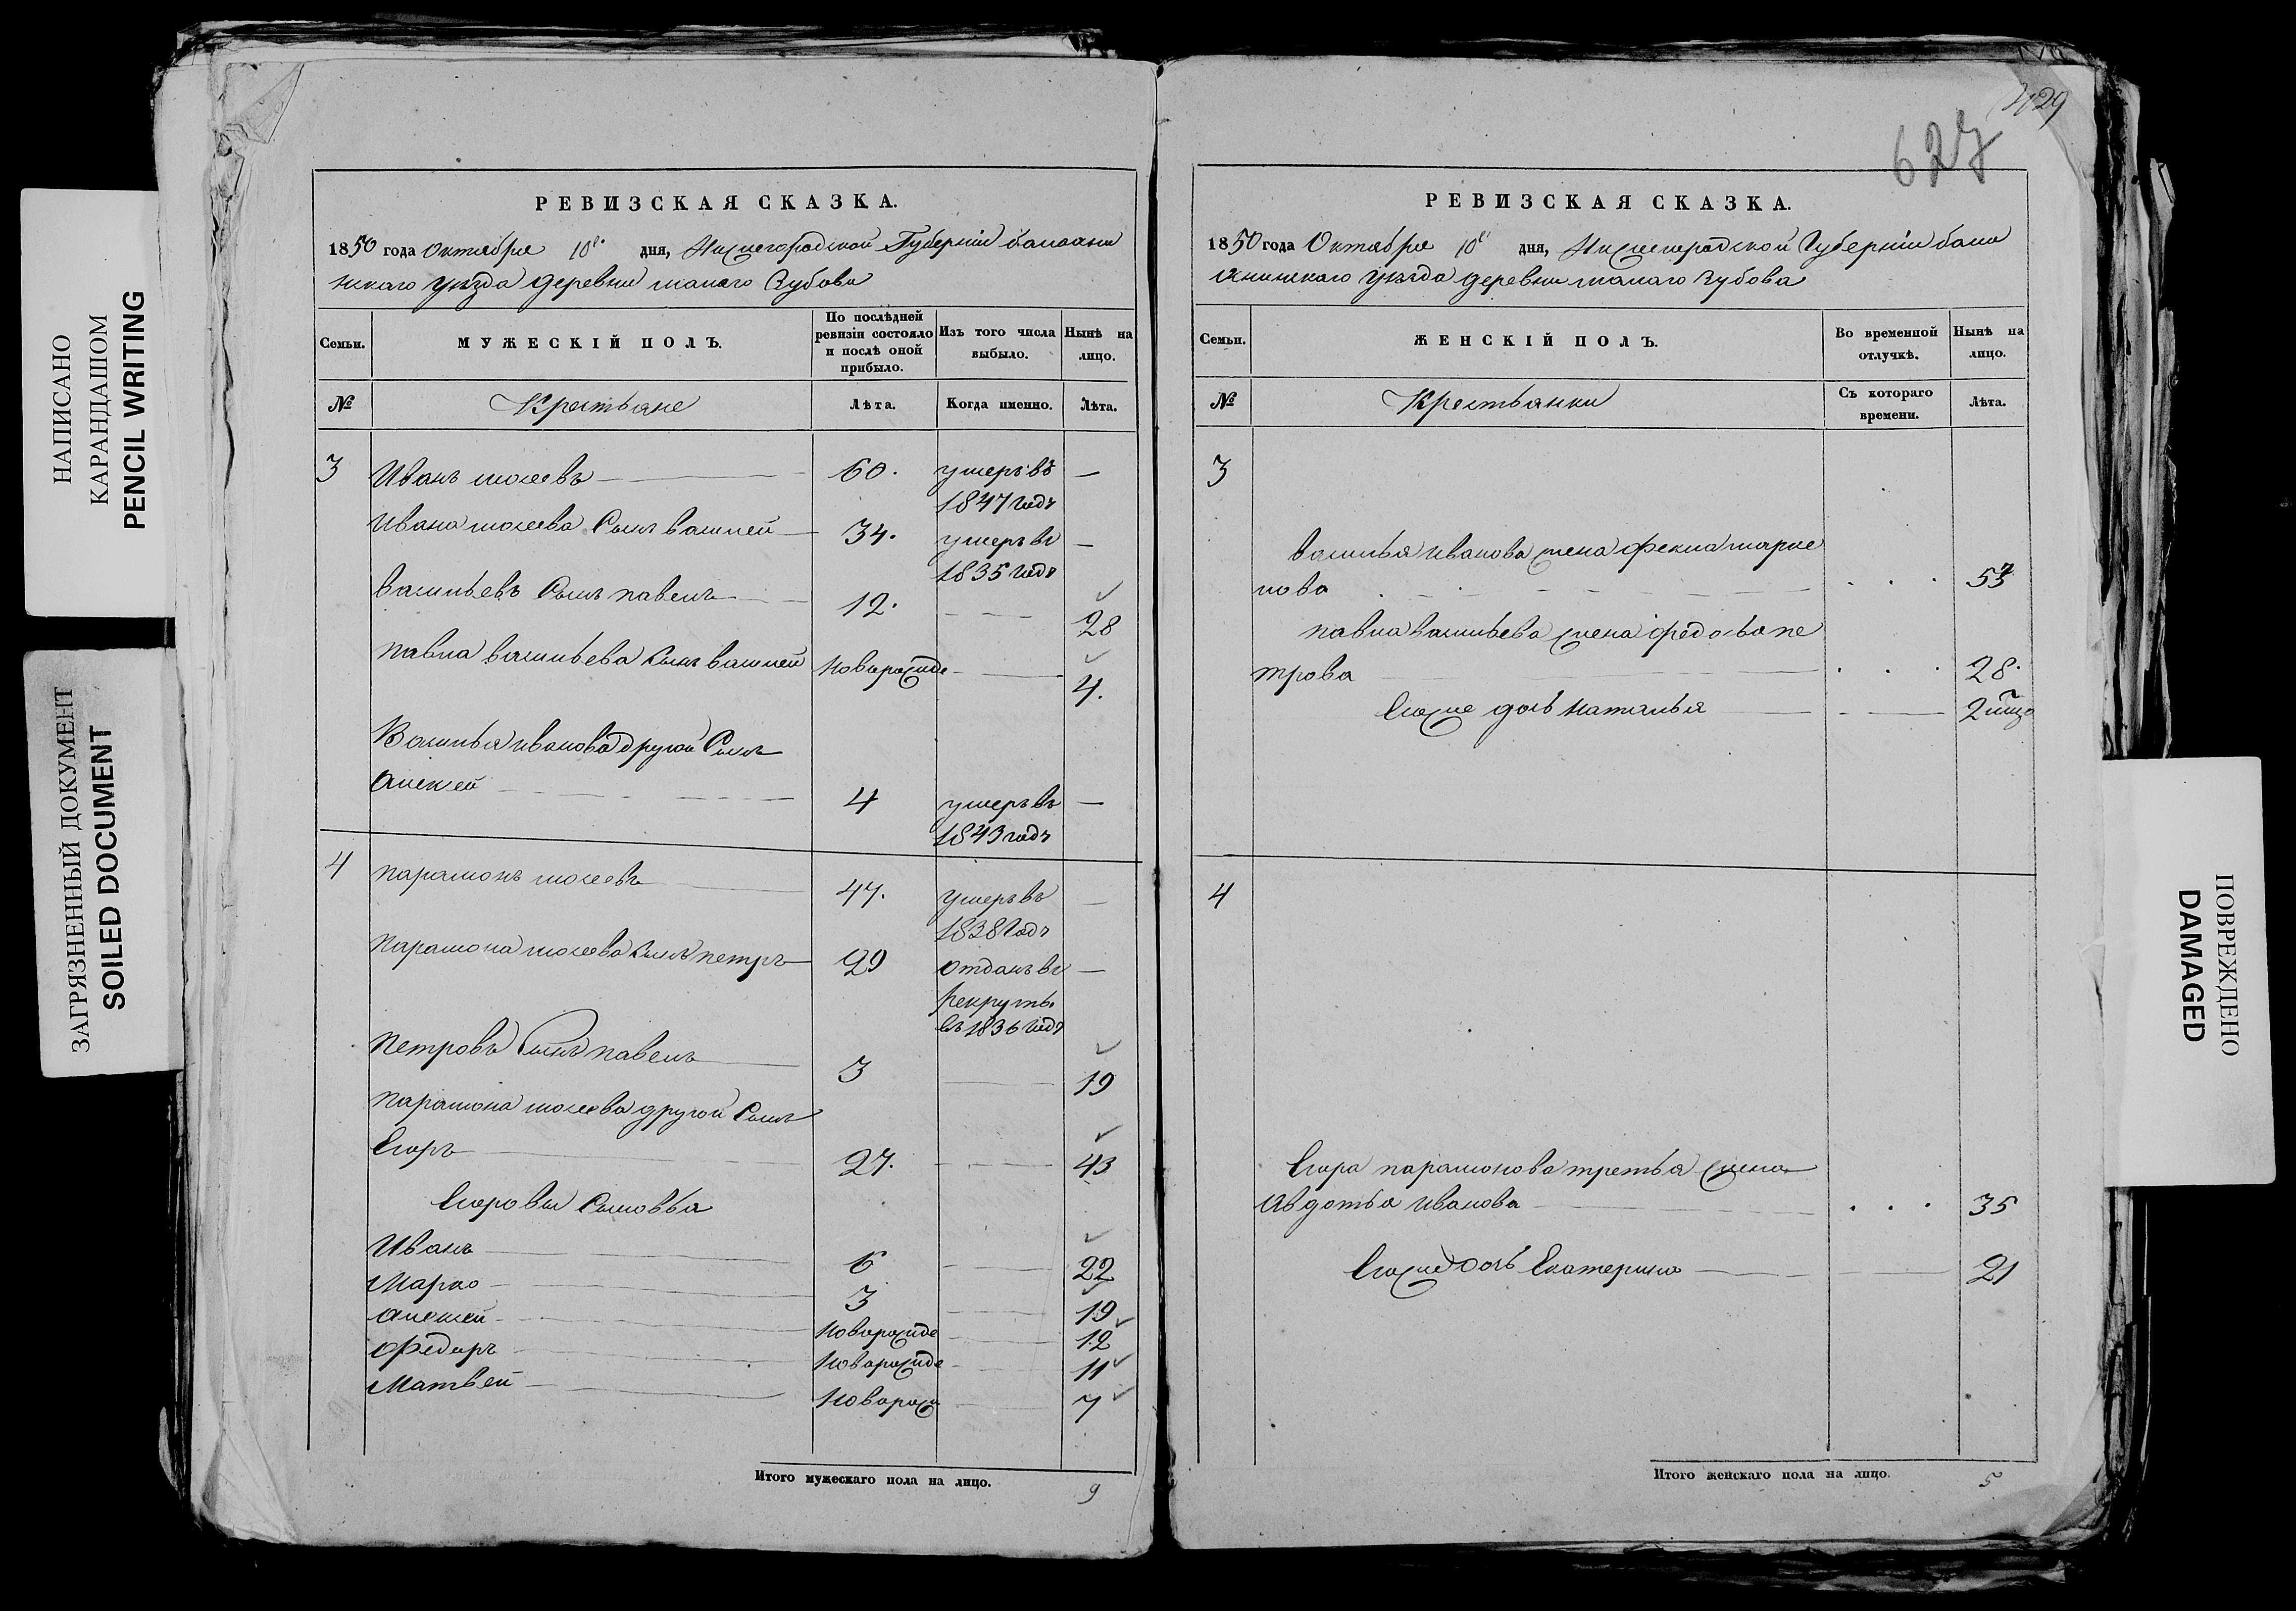 НАПИСАНО
КАРАНДАШОМ
PENCIL WRITING
ЗАГРЯЗНЕННЫЙ ДОКУМЕНТ
SOILED DOCUMENT
РЕВИЗСКАЯ СКАЗКА.
1850 года Октября 10го дня, Нижегородской Губерніи балахни
нскаго уѣзда деревни малаго Зубова
Семьи. МУЖЕСКІЙ ПОЛЪ. По послѣдней ревизіи состояло и послѣ оной прибыло. Изъ того числа выбыло. Нынѣ на лицо.
№ Крестьяне Лѣта. Когда именно. Лѣта.
3 Иванъ мосеевъ 60. умеръ въ —
1847 годѣ
Ивана мосеева Сынъ василей 34. умеръ въ —
1835 годѣ
васильевъ Сынъ павелъ 12. 28
павла васильева Сынъ василей новорожде 4.
Василья иванова другой Сынъ
алексей 4 умеръ въ —
1843 годѣ
4 парамонъ мосеевъ 47. умеръ въ —
1838 годѣ
парамона мосеева Сынъ петръ 29 отданъ въ —
рекруты
въ 1836 годѣ
петровъ Сынъ павелъ 3 19
парамона мосеева другой Сынъ
Егоръ 27. 43
Егоровы Сыновья
Иванъ 6 22
Марко 3 19
алексей новорожде 12
Федоръ новорожде 11
Матвей новорож 7
Итого мужескаго пола на лицо. 9
429
627
РЕВИЗСКАЯ СКАЗКА.
1850 года Октября 10го дня, Нижегородской Губерніи бала
хнинскаго уѣзда деревни малаго Зубова
Семьи. ЖЕНСКІЙ ПОЛЪ. Во временной отлучкѣ. Нынѣ на лицо.
№ Крестьянки Съ котораго времени. Лѣта.
3
василья иванова жена фекла марке
лова
павла васильева жена федосья пе
трова 28.
Ехже дочь наталья
4
Егора парамонова третья жена
Авдотья иванова 35
Дочь Екатерина 21
Итого женскаго пола на лицо. 5
ПОВРЕЖДЕНО
DAMAGED